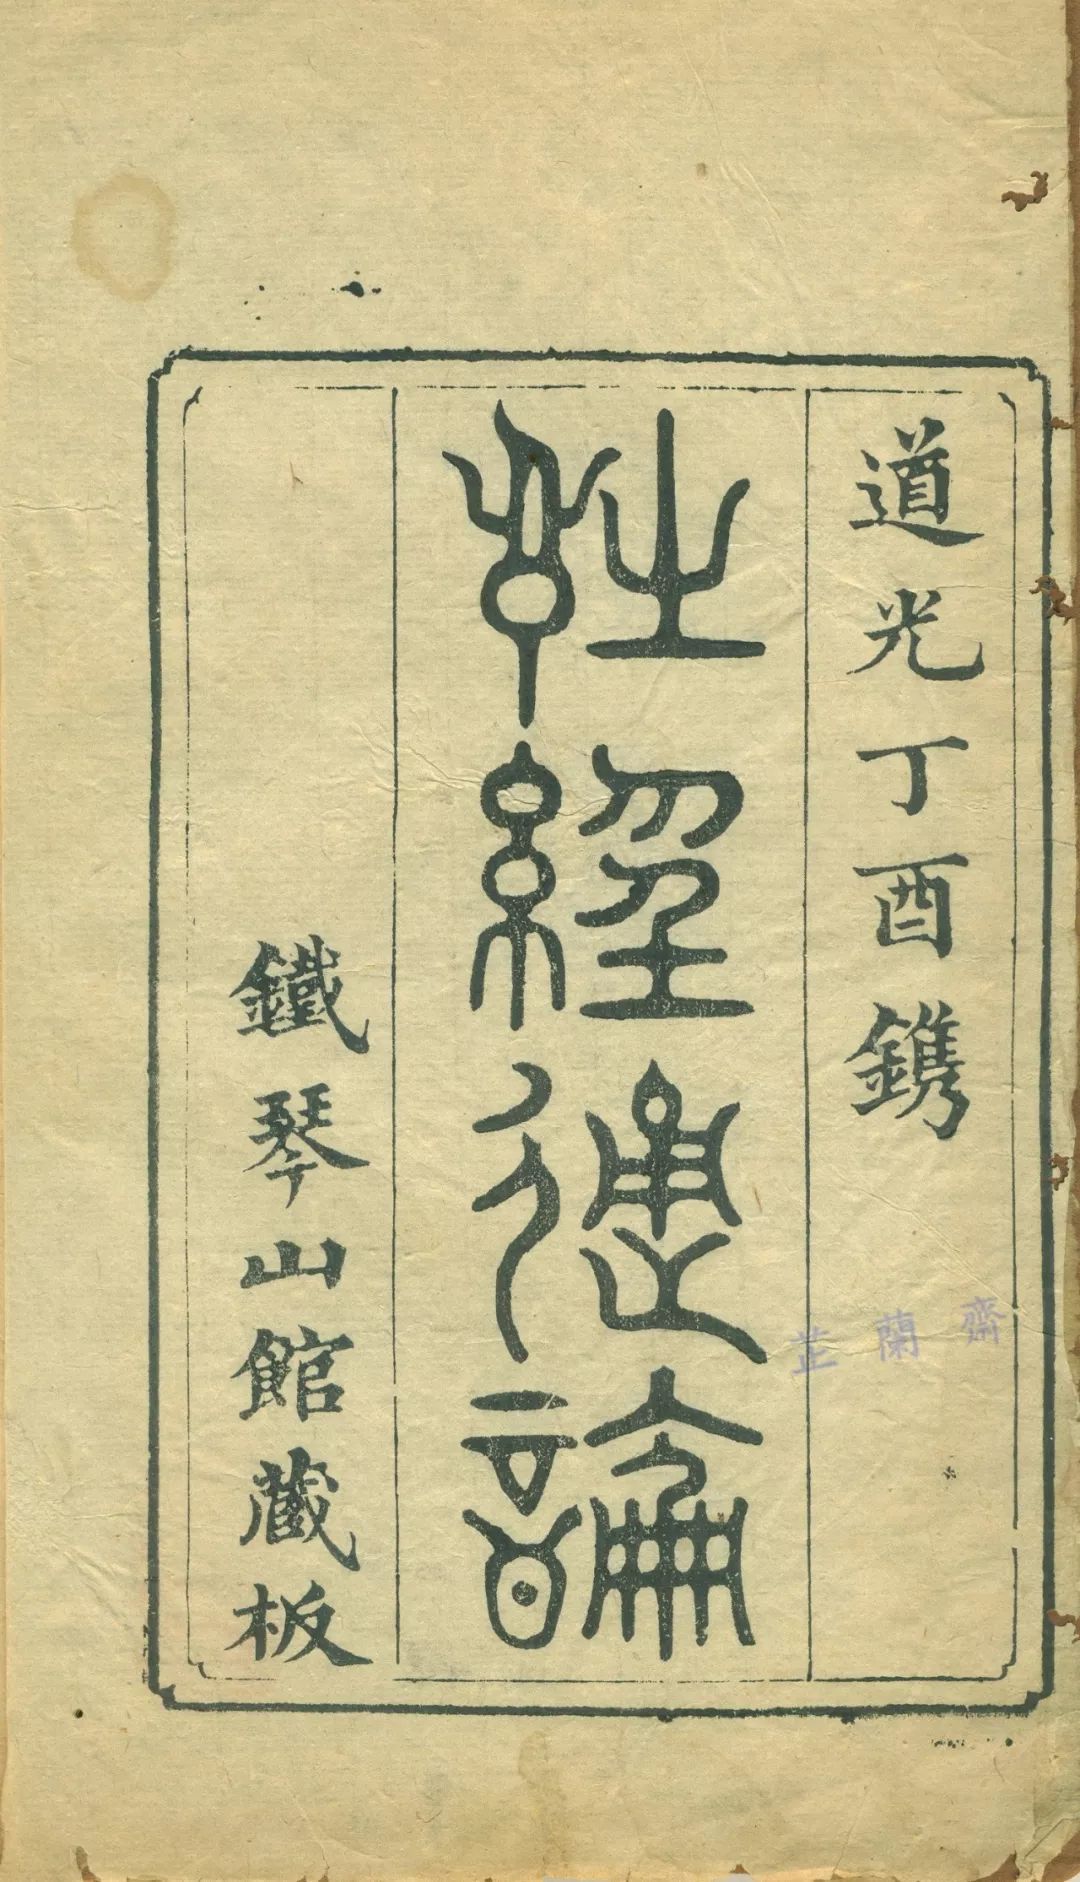 道光丁酉鐫
詩經通論
鐵琴山館藏板
芷蘭齋